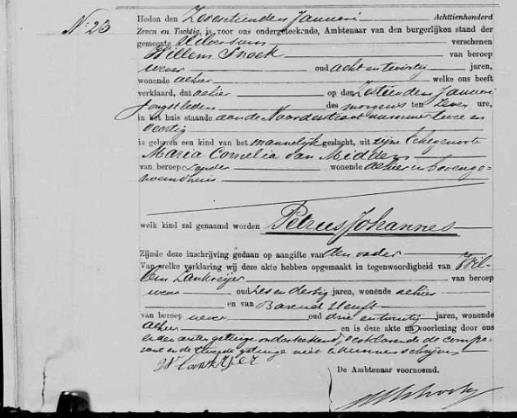 No 23
Heden den Zesentienden Januari Achttienhonderd
Zeven en Tachtig, is voor ons ondergeteekende, Ambtenaar van den burgerlijken stand der
gemeente Hilversum verschenen
Willem Snoek van beroep
wever oud acht en twintig jaren,
wonende alhier welke ons heeft
verklaard, dat alhier op den Zestienden Januari
jongstleden des morgens ten zeven ure,
in het huis staande aan de Noorderstraat nummer twee en
is geboren een kind van het mannelijk geslacht, uit zijne Echtgenoote
Maria Cornelia van Midden
van beroep zonder wonende alhier in bovenge-
noemd huis
welk kind zal genaamd worden Petrus Johannes
Zijnde deze inschrijving gedaan op aangifte van den vader
Van welke verklaring wij deze akte hebben opgemaakt in tegenwoordigheid van Wil-
lem Lankreijer van beroep
wever oud zes en dertig jaren, wonende alhier
en van Barend
van beroep wever oud drie en twintig jaren, wonende
alhier en is deze akte na voorlezing door ons
en den eersten getuige onderteekend, verklarende de compa-
rant en de tweede getuige niet te kunnen schrijven
W Lankreijer
De Ambtenaar voornoemd.